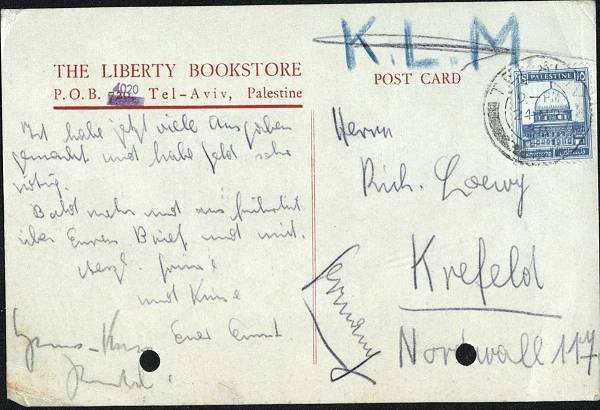 K.L.M
THE LIBERTY BOOKSTORE
P.O.B. 4020 Tel-Aviv, Palestine
POST CARD
PALESTINE
habe jetzt viele Ausgaben
gemacht und habe Geld sehr
nötig.
Bald mehr und ausführlich
über Euren Brief und mit.
Herzl. Grüsse
und Küsse
Euer
Herrn
Rich. Loewy
Krefeld
Nordwall 117
Germany